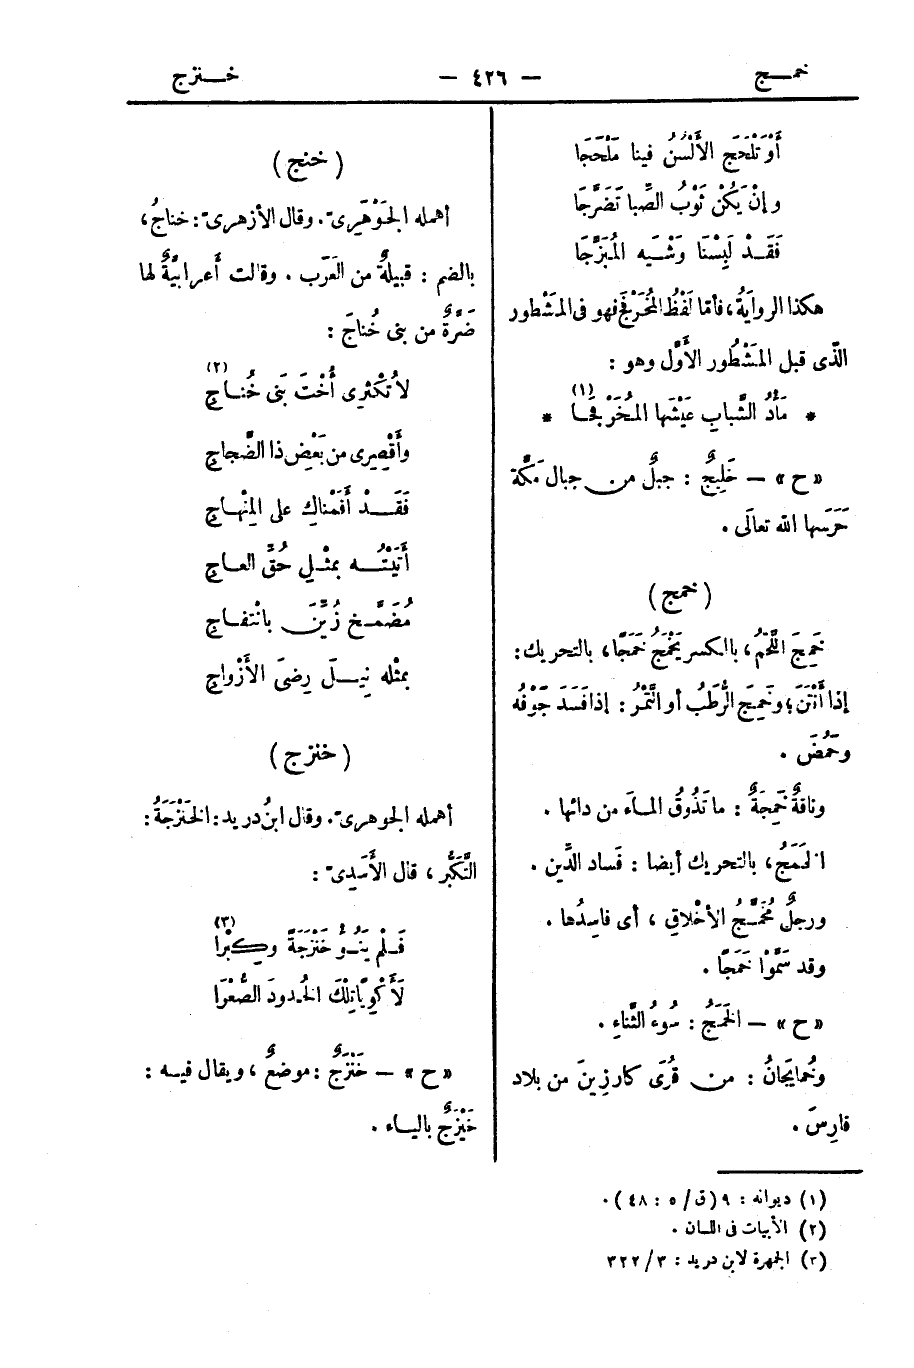 خمـج — ٤٢٦ — خـنزج
أَوْ تَلْحَجَ الأَلْسُنُ فينا مَلْحَجَا
وإنْ يَكُنْ ثَوْبُ الصِّبا تَضَرَّجَا
فَقَـدْ لَبِسْنَا وَشْيَه المُبَزَّجَا
هكذا الروايةُ، فأمّا لَفْظُ المُخَرْفَجِ فهو فى المَشْطور
الّذى قبل المَشْطُور الأَوَّل وهو :
* مَأْدُ الشَّبابِ عَيْشَها المُخَرْفَجَـا (١) *
«ح» — خَلِيجٌ : جبلٌ من جبال مَكّةَ
حَرَسَها الله تعالَى .
(خمج)
خَمِجَ اللَّحْمُ، بالكسر يَخْمَجُ خَمَجًا، بالتحريك :
إذا أَنْتَنَ؛ وخَمِجَ الرُّطَبُ أو التَّمْرُ : إذا فَسَدَ جَوْفُه
وحَمُضَ .
وناقةٌ خَمِجَةٌ : ما تَذُوقُ المـاءَ من دائها .
الخَمَجُ، بالتحريك أيضا : فَساد الدِّين .
ورجلٌ مُخَمَّـجُ الأخْلاقِ ، أى فاسِدُها .
وقد سَمَّوْا خَمَجًا .
«ح» — الخَمَجُ : سُوءُ الثَّناءِ .
وخُمايجَانُ : من قُرَى كارزِينَ من بلاد
فارِسَ .
(خنج)
أهمله الجَوْهَرِىّ . وقال الأزهرىّ : خناجُ،
بالضم : قبيلةٌ من العَرَب . وقالت أعرابيَّةٌ لها
ضَرَّةٌ من بنى خُناجَ :
لا تُكْثِرِى أُخْتَ بَنى خُنـاجِ (٢)
وأَقْصِرِى من بَعْضِ ذا الضَّجاجِ
فَقَـــدْ أَقَمْناكِ على المِنْهاجِ
أَتَيْتُـــه بمثْـلِ حُقِّ العـاجِ
مُضَمَّـخ زُيِّنَ بانْتفـاجِ
بمثْله نِيـــلَ رِضَى الأَزْواجِ
(خنزج)
أهمله الجوهرىّ . وقال ابنُ دريد : الخَنْزَجَةُ :
التَّكَبُّر ، قال الأَسَدِىّ :
فَـلْم يَنُـؤُ خَنْزَجَةً وكِبْرَا (٣)
لَأَكْوِيًا تِلْكَ الخُدودَ الصُّعْرَا
«ح» — خَنْزَجٌ : موضعٌ ، ويقال فيـه :
خَيْزَجٌ باليـاء .
(١) ديوانه : ٩ (ق/ ٥ : ٤٨) .
(٢) الأبيات فى اللسان .
(٣) الجمهرة لابن دريد : ٣/ ٣٢٢